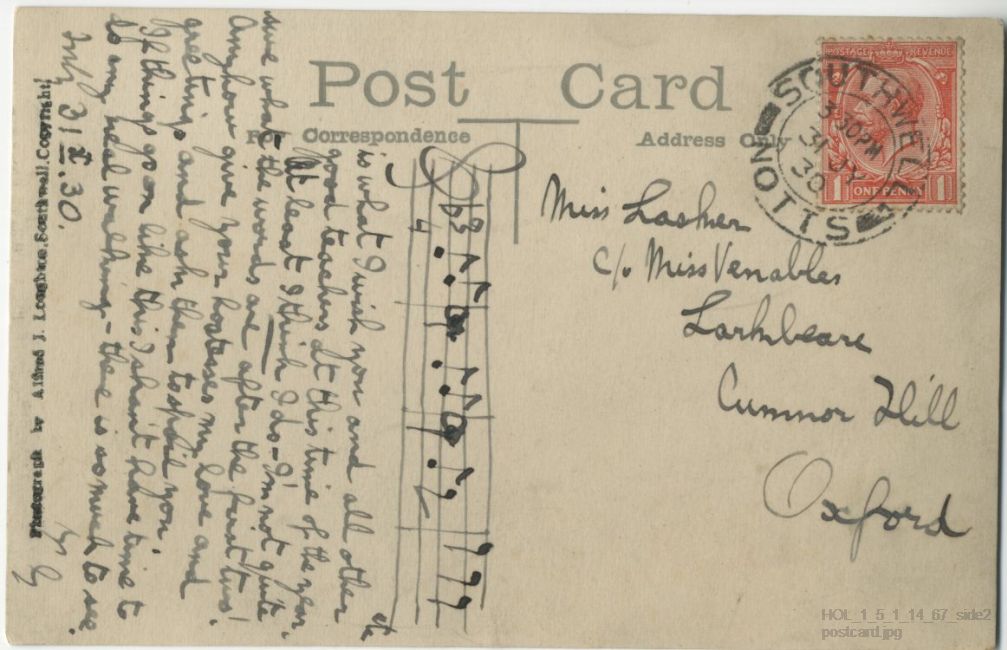 Post Card
For Correspondence
Address Only
POSTAGE REVENUE
ONE PENNY
1 1
SOUTHWELL
3 30 PM
31 JY
30
NOTTS
Miss Lasker
c/o Miss Venables
Larkbeare
Cumnor Hill
Oxford
etc
is what I wish you and all other
good teachers at this time of the year.
At least I think I do – I'm not quite
sure what the words are after the first two!
Anyhow give your hostesses my love and
greetings and ask them to spoil you.
If things go on like this I shan't have time to
do any real walking – there is so much to see.
July 31st .30.
Photograph by Alfred J. Loughton, Southwell, Copyright
HOL_1_5_1_14_67_side2
postcard.jpg